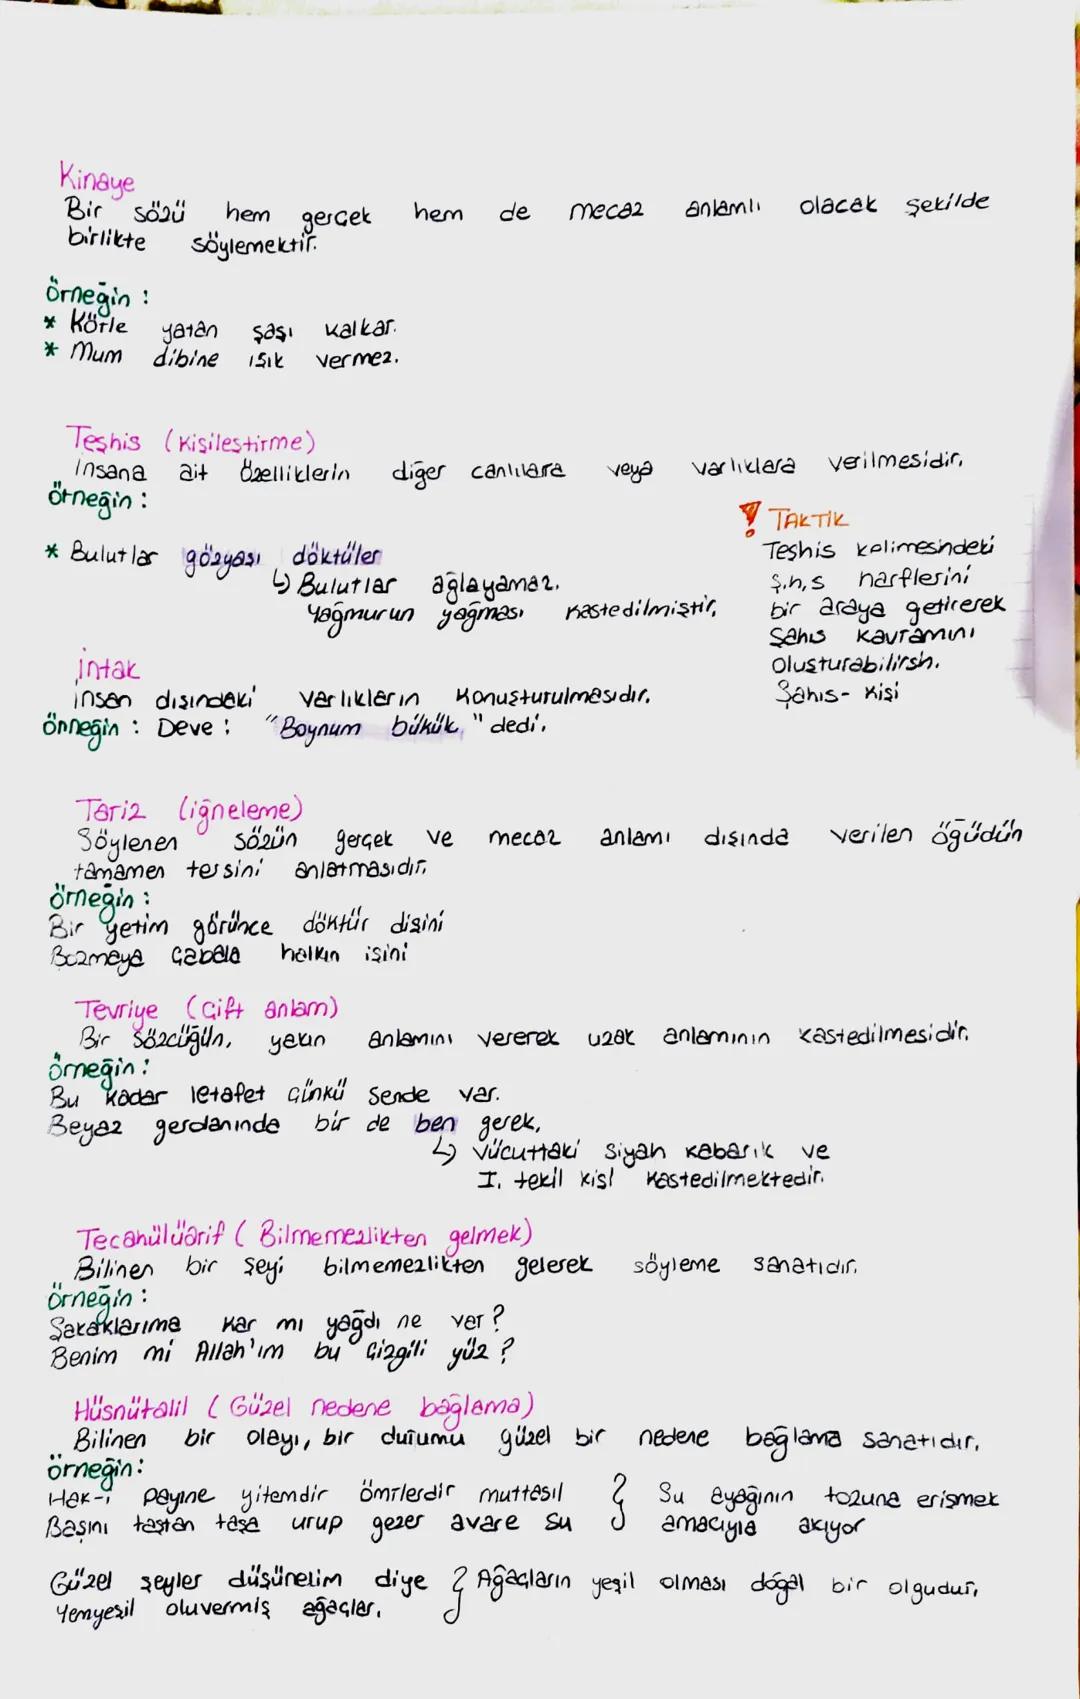 Kinaye
Bir sözü hem gerçek hem de mecaz anlamlı olacak şekilde
birlikte söylemektir.
örneğin :
* Körle yatan şaşı kalkar.
* Mum dibine ışık vermez.
Teşhis (kişileştirme)
İnsana ait özelliklerin diğer canlılara veya varlıklara verilmesidir.
örneğin :
* Bulutlar gözyaşı döktüler
↳ Bulutlar ağlayamaz.
Yağmurun yağması kastedilmiştir.
! TAKTİK
Teşhis kelimesindeki
ş,h,s harflerini
bir araya getirerek
Şahıs kavramını
oluşturabilirsin.
Şahıs - kişi
İntak
İnsan dışındaki varlıkların konuşturulmasıdır.
örneğin : Deve : "Boynum bükük" dedi.
Tariz (iğneleme)
Söylenen sözün gerçek ve mecaz anlamı dışında verilen öğüdün
tamamen tersini anlatmasıdır.
örneğin :
Bir yetim görünce döktür dişini
Bozmaya çabala halkın işini
Tevriye (Çift anlam)
Bir sözcüğün, yakın anlamını vererek uzak anlamının kastedilmesidir.
örneğin :
Bu kadar letafet çünkü sende var.
Beyaz gerdanında bir de ben gerek.
↳ Vücuttaki siyah kabarık ve
I. tekil kişi kastedilmektedir.
Tecahülüarif ( Bilmemezlikten gelmek)
Bilinen bir şeyi bilmemezlikten gelerek söyleme sanatıdır.
örneğin :
Şakaklarıma kar mı yağdı ne var ?
Benim mi Allah'ım bu çizgili yüz ?
Hüsnütalil ( Güzel nedene bağlama)
Bilinen bir olayı, bir durumu güzel bir nedene bağlama sanatıdır.
örneğin:
Hak-i payine yitemdir ömrlerdir muttasıl } Su ayağının tozuna erişmek
Başını taştan taşa urup gezer avare su amacıyla akıyor
Güzel şeyler düşünelim diye } Ağaçların yeşil olması doğal bir olgudur.
Yemyeşil oluvermiş ağaçlar.